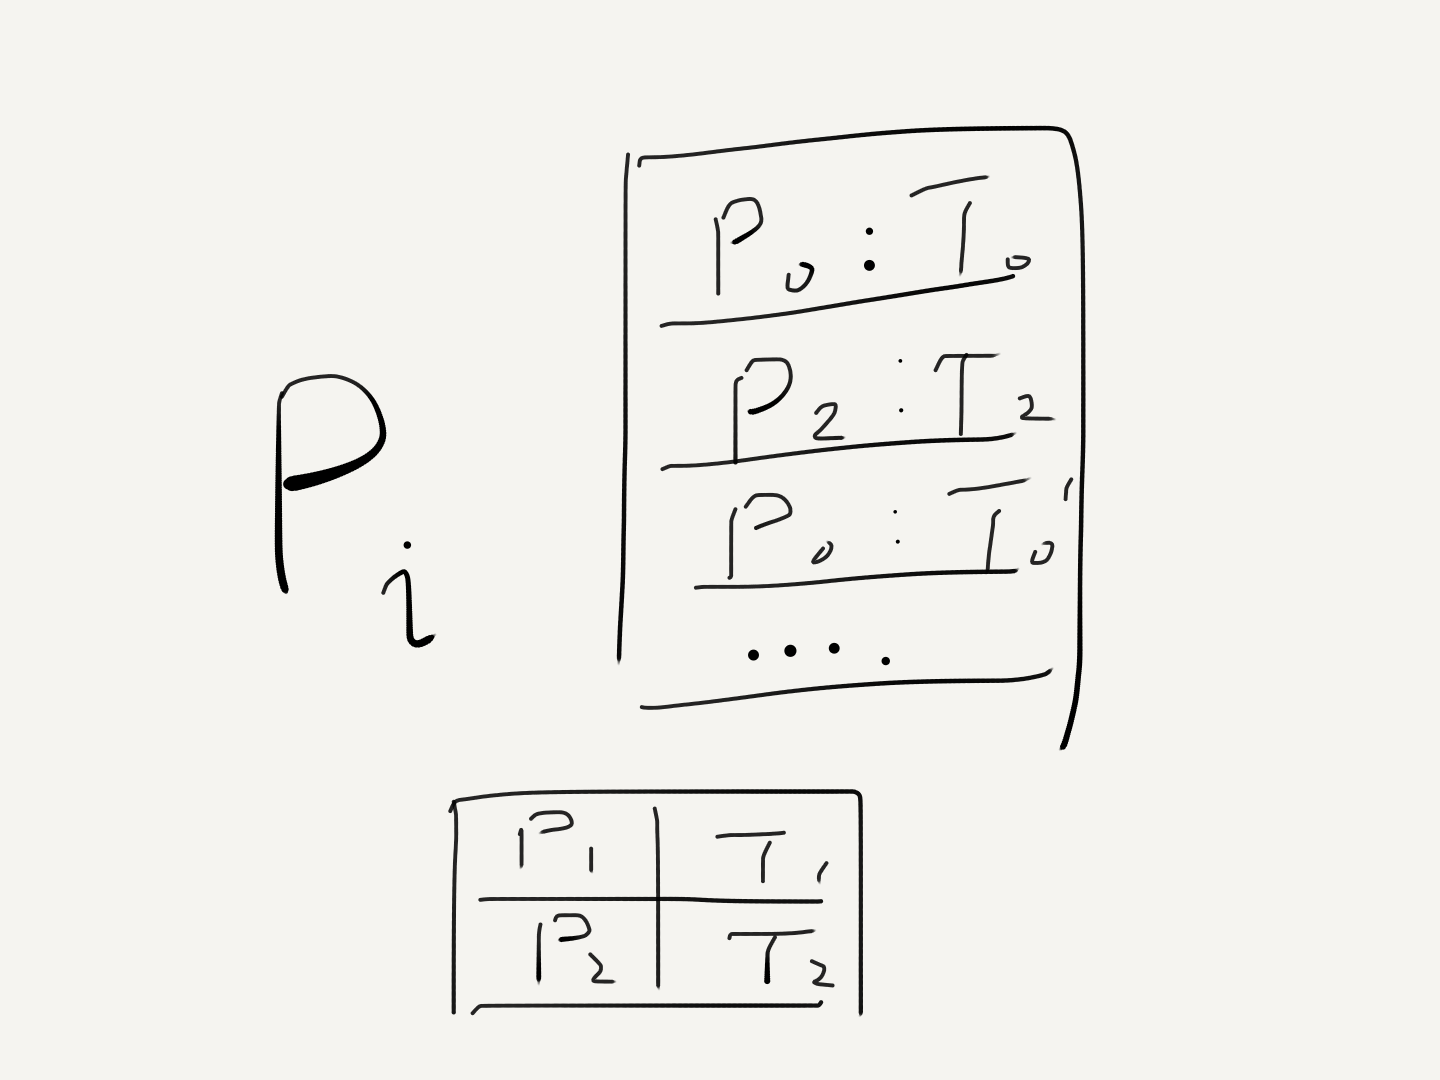 P₀ : T₀
P₂ : T₂
P₀ : T₀'
....
Pᵢ
P₁ T₁
P₂ T₂